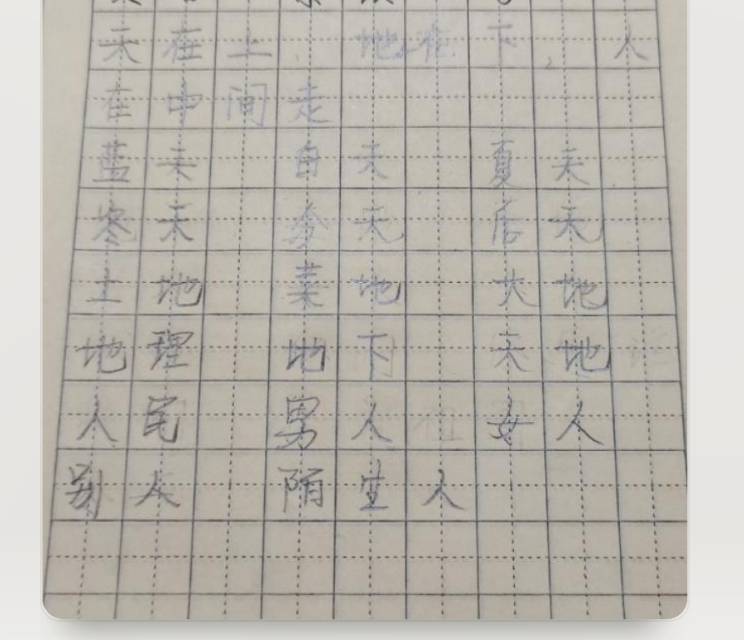 天在上 地在下，人
在中间走
蓝天 白天 夏天
寒天 今天 后天
土地 菜地 大地
地理 地下 天地
人民 男人 女人
别人 陌生人